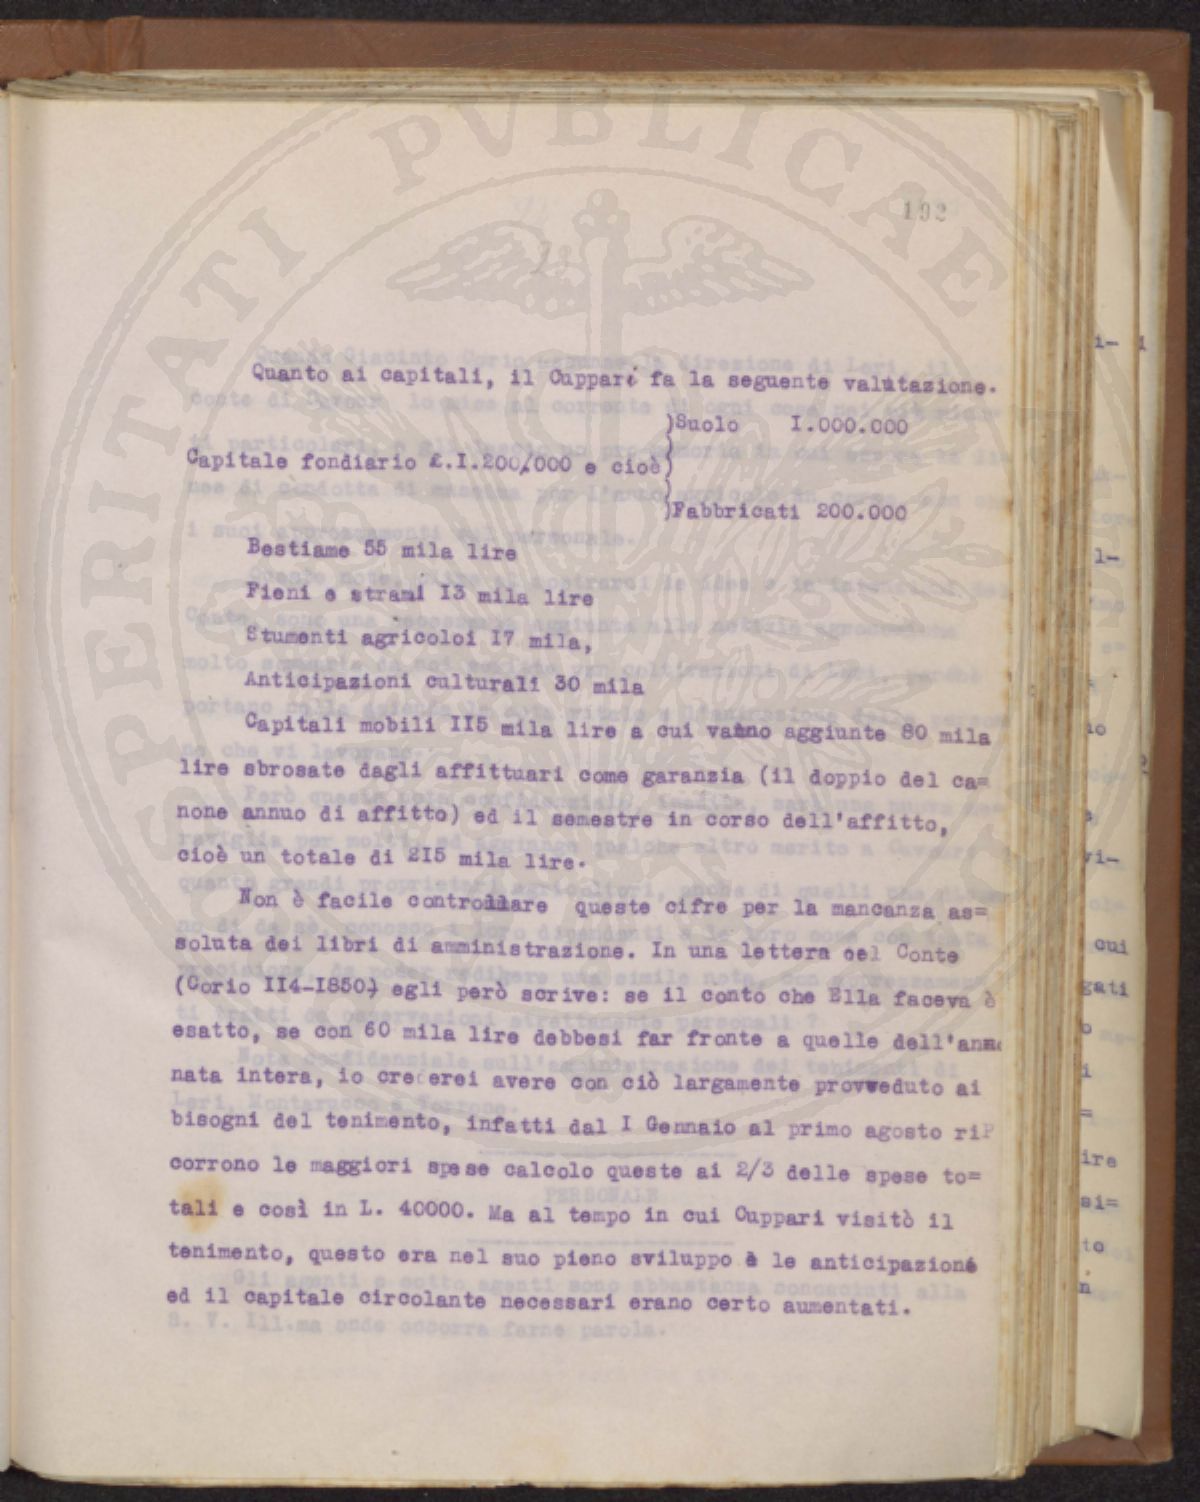 PROSPERITATI PVBLICAE
192
Quanto ai capitali, il Cuppari fa la seguente valutazione.
)Suolo I.000.000
Capitale fondiario £.I.200.000 e cioè)
)Fabbricati 200.000
Bestiame 55 mila lire
Fieni e strami I3 mila lire
Stumenti agricoloi I7 mila,
Anticipazioni culturali 30 mila
Capitali mobili II5 mila lire a cui vanno aggiunte 80 mila
lire sbrosate dagli affittuari come garanzia (il doppio del ca=
none annuo di affitto) ed il semestre in corso dell'affitto,
cioè un totale di 2I5 mila lire.
Non è facile controllare queste cifre per la mancanza as=
soluta dei libri di amministrazione. In una lettera del Conte
(Corio II4-I850) egli però scrive: se il conto che Ella faceva è
esatto, se con 60 mila lire debbesi far fronte a quelle dell'an=
nata intera, io crederei avere con ciò largamente provveduto ai
bisogni del tenimento, infatti dal I Gennaio al primo agosto ri=
corrono le maggiori spese calcolo queste ai 2/3 delle spese to=
tali e così in L. 40000. Ma al tempo in cui Cuppari visitò il
tenimento, questo era nel suo pieno sviluppo e le anticipazioni
ed il capitale circolante necessari erano certo aumentati.